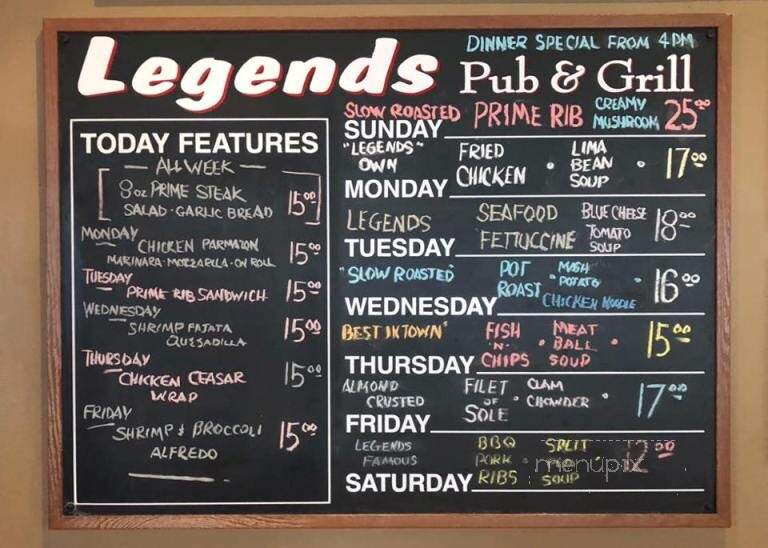 Legends
DINNER SPECIAL FROM 4PM
Pub & Grill
TODAY FEATURES
ALL WEEK
8oz PRIME STEAK
SALAD · GARLIC BREAD 15.00
MONDAY
CHICKEN PARMATON
MARINARA · MOZZARELLA · ON ROLL 15.00
TUESDAY
PRIME RIB SANDWICH 15.00
WEDNESDAY
SHRIMP FAJATA
QUESADILLA 15.00
THURSDAY
CHICKEN CEASAR
WRAP 15.00
FRIDAY
SHRIMP & BROCCOLI
ALFREDO 15.00
SLOW ROASTED PRIME RIB CREAMY
MUSHROOM 25.00
SUNDAY
"LEGENDS" FRIED LIMA
OWN CHICKEN · BEAN · 17.00
SOUP
MONDAY
LEGENDS SEAFOOD BLUE CHEESE
FETTUCCINE TOMATO 18.00
SOUP
TUESDAY
"SLOW ROASTED" POT · MASH
ROAST POTATO · 16.00
CHICKEN NOODLE
WEDNESDAY
BEST IN TOWN" FISH MEAT
'N' · BALL · 15.00
CHIPS SOUP
THURSDAY
ALMOND FILET CLAM
CRUSTED OF · CHOWDER · 17.00
SOLE
FRIDAY
LEGENDS BBQ SPLIT
FAMOUS PORK · 12.00
RIBS SOUP
SATURDAY
menupix